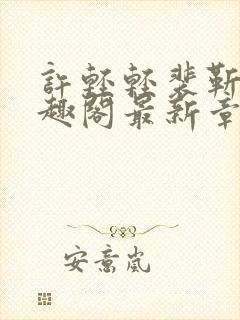 許輕輕裴靳
趣閣最新章
安意嵐